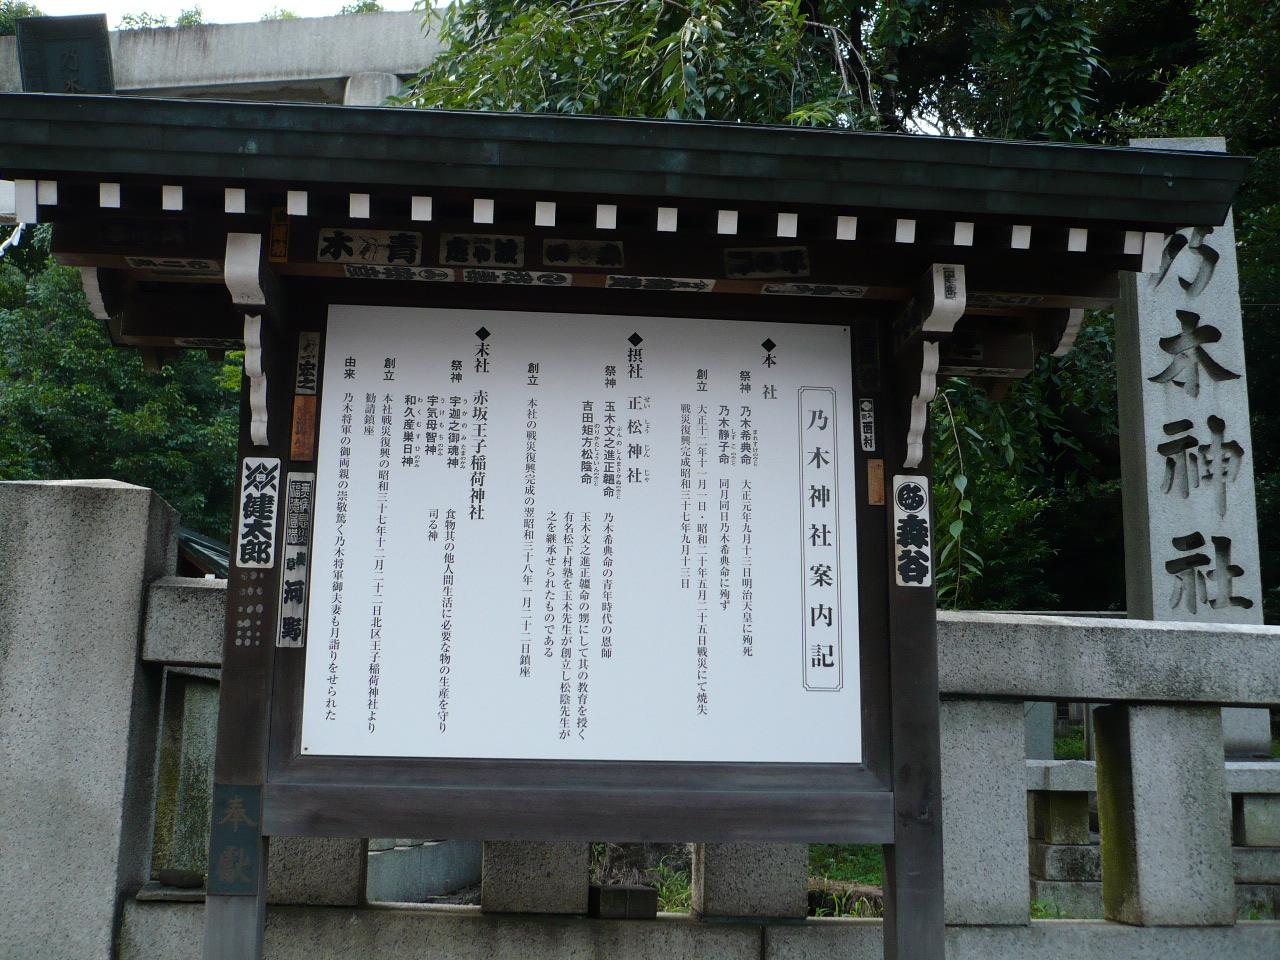 乃木神社案内記
◆本社
祭神 乃木希典命 大正元年九月十三日明治天皇に殉死
乃木静子命 同月同日乃木希典命に殉ず
創立 大正十二年十一月一日・昭和二十年五月二十五日戦災にて焼失
戦災復興完成昭和三十七年九月十三日
◆摂社 正松神社
祭神 玉木文之進正韞命 乃木希典命の青年時代の恩師
玉木文之進正韞命の甥にして其の教育を授く
吉田矩方松陰命 有名松下村塾を玉木先生が創立し松陰先生が
之を継承せられたものである
創立 本社の戦災復興完成の翌昭和三十八年一月二十二日鎮座
◆末社 赤坂王子稲荷神社
祭神 宇迦之御魂神 食物其の他人間生活に必要な物の生産を守り
宇気母智神 司る神
和久産巣日神
創立 本社戦災復興の昭和三十七年十二月二十二日北区王子稲荷神社より
勧請鎮座
由来 乃木将軍の御両親の崇敬篤く乃木将軍御夫妻も月詣りをせられた
乃木神社
青木
健太郎
河野
森谷
西村
宏之
奉献
乃木